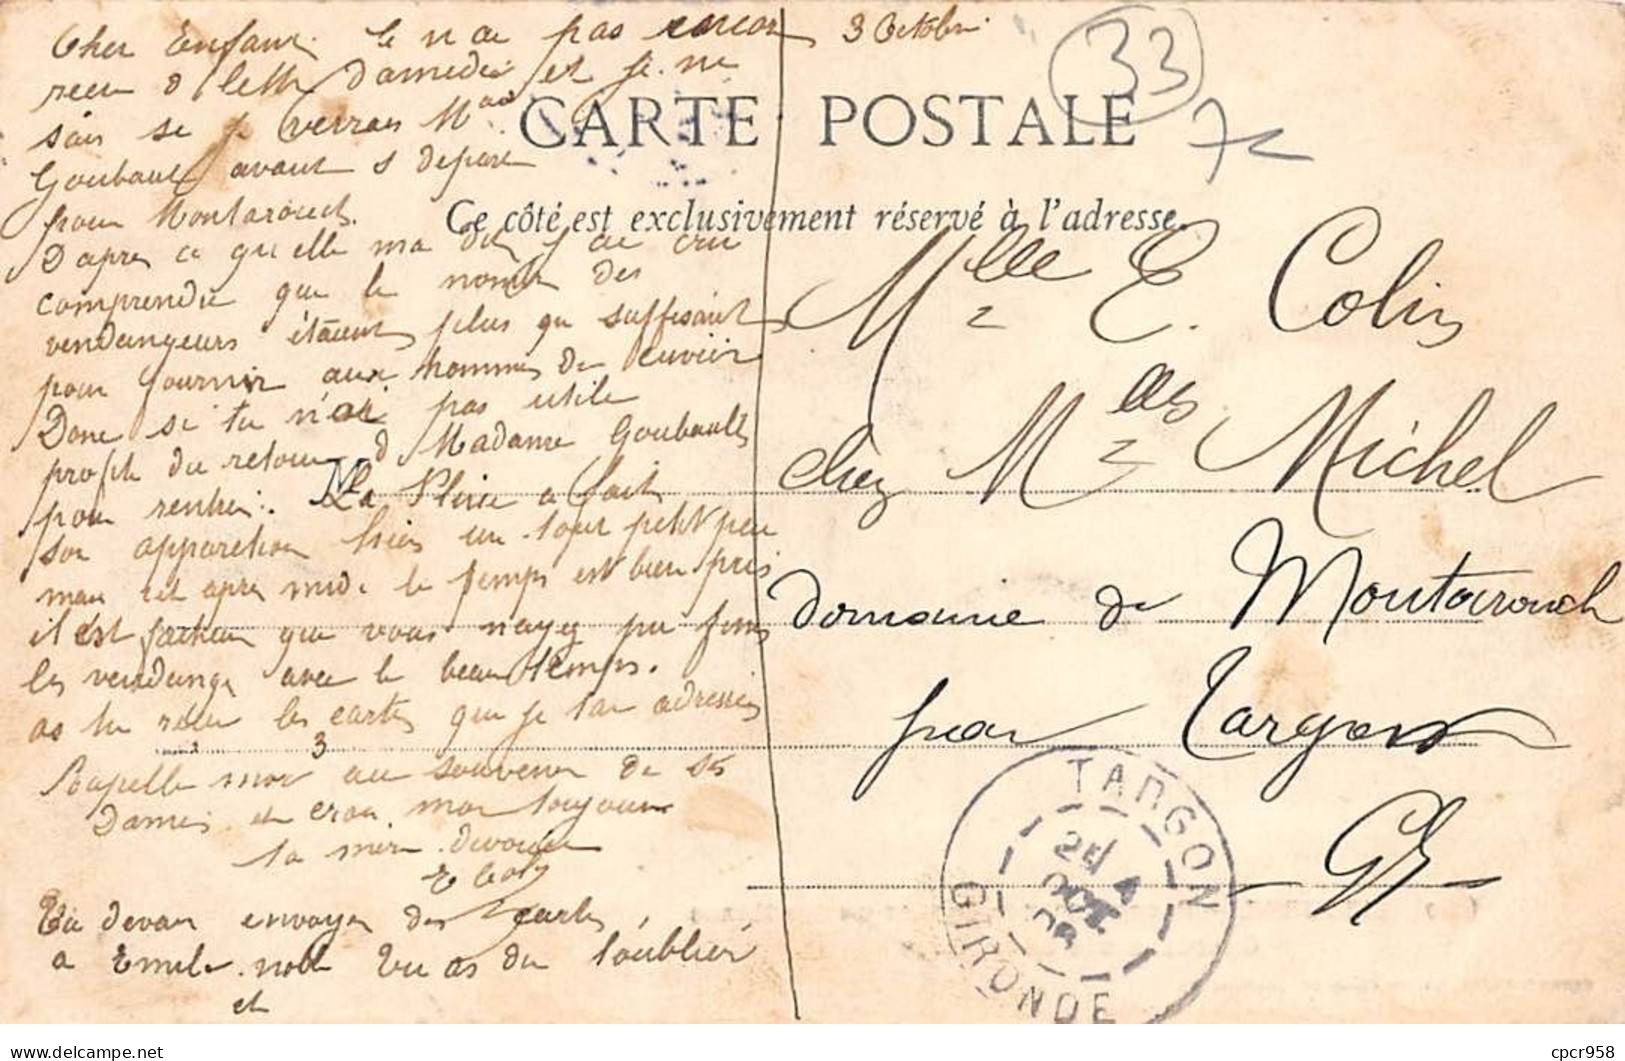 3 Octobre
33
Cher Enfant. Je n ai pas encor
recu d lettr damedé et je ne
sais se je verrai Mme
Goubault avant s depart
pour Montarouch.
D apres ce qu elle ma dit j ai cru
comprendre que le nombr des
vendangeurs étaient plus qu suffisant
pour fournir aux hommes de cuvier
Donc si tu n'ai pas utile
profite du retour d Madame Goubault
pour rentrer. La Pluie a fait
son apparition hier un tout petit peu
mais cet apres midi le temps est bien pris
il est facheux que vous nayez pu finir
les vendange avec le beau temps.
as tu recu les cartes que je tai adressé
3
Rapelle moi au souvenir de ses
Dames et croi moi toujours
ta mere devouée
E Colin
Tu devais envoyer des cartes
a Emile. noll tu as du l'oublier
et
CARTE POSTALE
Ce côté est exclusivement réservé à l'adresse.
Mlle E. Colin
chez Mmes Michel
domaine de Montarouch
par Targon
Gde
TARGON
GIRONDE
cpcr958